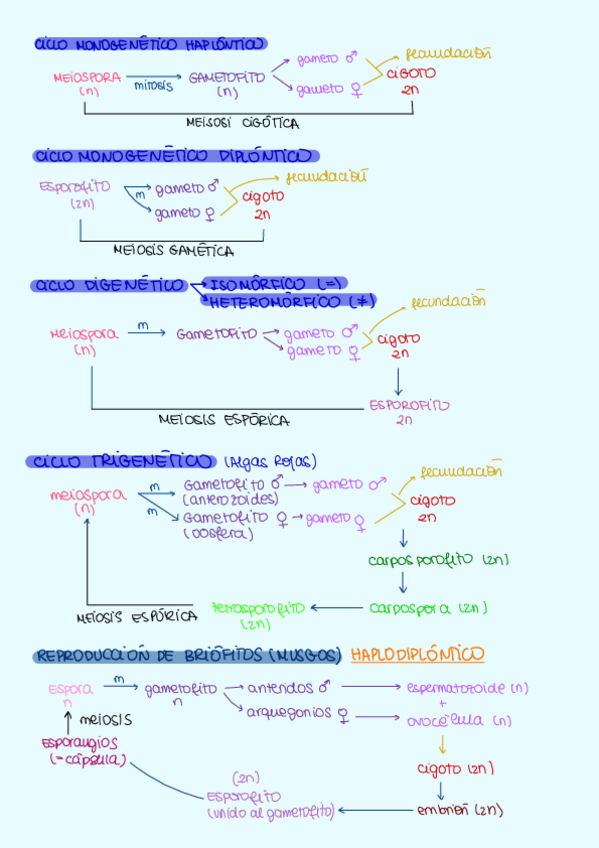 CICLO MONOGENÉTICO HAPLÓNTICO
MEIOSPORA (n) mitosis GAMETOFITO (n) gameto ♂ gaueto ♀ fecundación CIGOTO 2n
MEISOSI CIGÓTICA
CICLO MONOGENÉTICO DIPLÓNTICO
ESPOROFITO (2n) m gameto ♂ gameto ♀ fecundación cigoto 2n
MEIOSIS GAMÉTICA
CICLO DIGENÉTICO ISOMÓRFICO (=)
HETEROMÓRFICO (≠)
Meiospora (n) m GAMETOFITO gameto ♂ gameto ♀ fecundación cigoto 2n
ESPOROFITO 2n
MEIOSIS ESPÓRICA
CICLO TRIGENÉTICO (Algas Rojas)
meiospora (n) m m
Gametofito ♂ gameto ♂ fecundación
(anterozoides)
Gametofito ♀ gameto ♀ cigoto 2n
(oosfera)
carposporofito (2n)
tetrasporofito (2n) carpospora (2n)
MEIOSIS ESPÓRICA
REPRODUCCIÓN DE BRIÓFITOS (MUSGOS) HAPLODIPLÓNTICO
ESPORA n m gametofito n anteridos ♂ espermatozoide (n)
+
arquegonios ♀ ovocélula (n)
meiosis
Esporangios
(=cápsula)
cigoto (2n)
(2n)
Esporofito
(unido al gametofito)
embrión (2n)